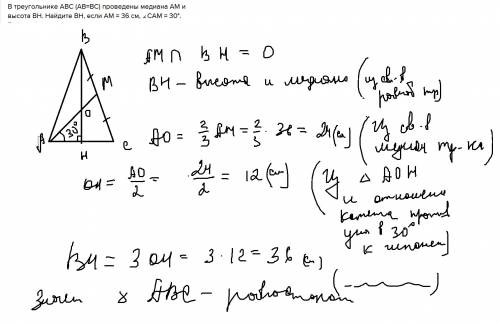 В треугольнике ABC (AB=BC) проведены медиана AM и
высота BH. Найдите BH, если AM = 36 см, ∠CAM = 30°.
B
M
O
30°
A
H
C
AM ∩ BH = O
BH – высота и медиана (из св-в
равноб тр)
AO = 2/3 AM = 2/3 · 36 = 24 (см) (Из св-в
медиан тр-ка)
OH = AO/2 = 24/2 = 12 (см) (Из △ AOH
и отношения
катета против
угла в 30°
к гипотен)
BH = 3 OH = 3 · 12 = 36 (см)
ABC –